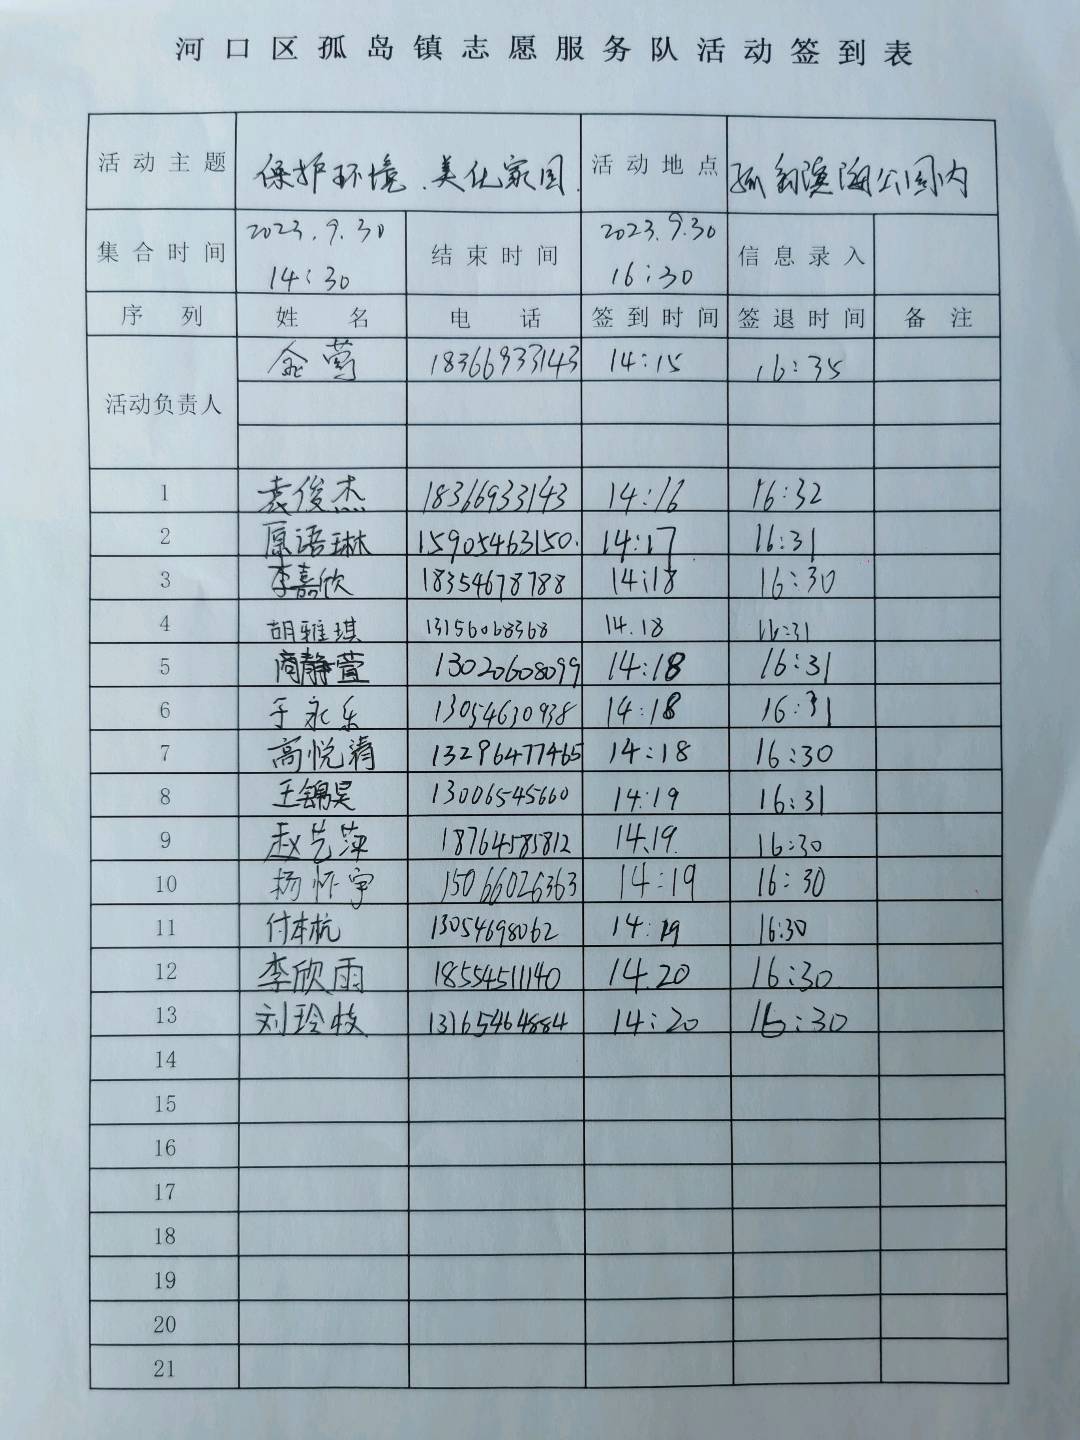 河口区孤岛镇志愿服务队活动签到表
活动主题 保护环境.美化家园. 活动地点 孤岛滨海公园内
集合时间 2023.9.30 14:30 结束时间 2023.9.30 16:30 信息录入
序列 姓名 电话 签到时间 签退时间 备注
活动负责人 18366933143 14:15 16:35
1 袁俊杰 18366933143 14:16 16:32
2 原语琳 15905463150. 14:17 16:31
3 李嘉欣 18354678788 14:18 16:30
4 胡雅琪 13156068368 14.18 16:31
5 商静萱 13020608099 14:18 16:31
6 于永乐 13054630938 14:18 16:31
7 高悦清 13296477465 14:18 16:30
8 王锦昊 13006545660 14:19 16:31
9 赵艺萍 18764585812 14.19. 16:30
10 杨怀宇 15066026363 14:19 16:30
11 付本杭 13054698062 14:19 16:30
12 李欣雨 18554511140 14.20 16:30
13 刘玲枝 13165464884 14:20 16:30
14
15
16
17
18
19
20
21